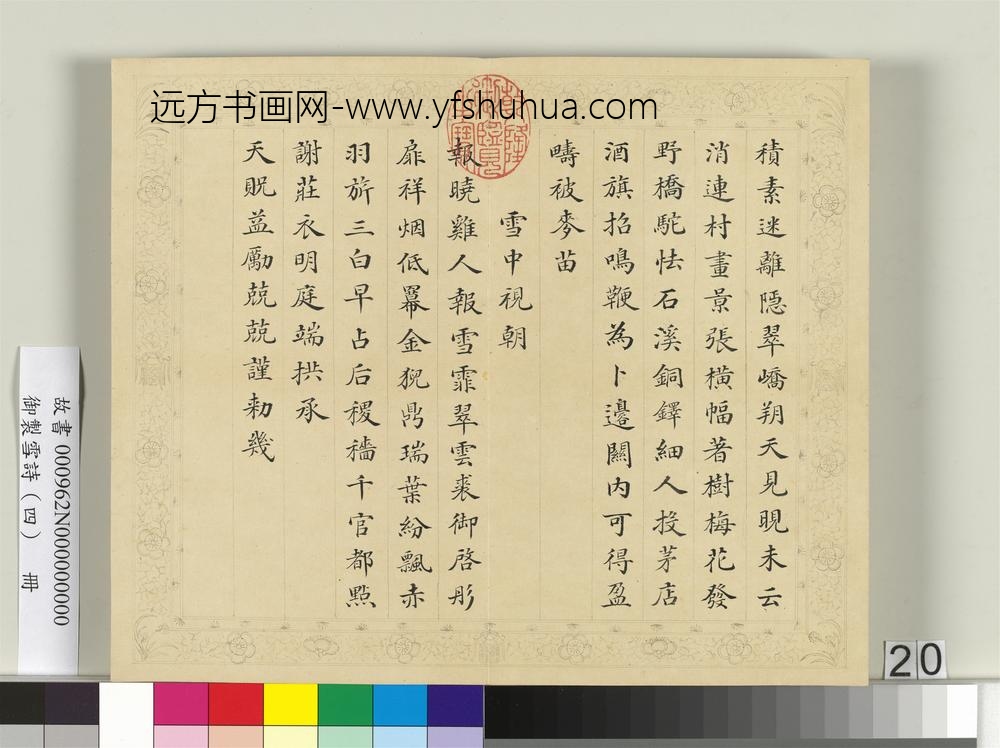 远方书画网-www.yfshuhua.com
積素迷離隱翠嶠朔天見晛未云
消連村畫景張橫幅著樹梅花發
野橋駝怯石溪銅鐸細人投茅店
酒旗招鳴鞭為卜邉關內可得盈
疇被麥苗
雪中視朝
報曉雞人報雪霏翠雲裘御啓彤
扉祥烟低羃金猊鼎瑞葉紛飄赤
羽旂三白早占后稷穡千官都點
謝莊衣明庭端拱承
天貺益勵兢兢謹勑幾
故書 000962N000000000
御製雪詩（四） 冊
20